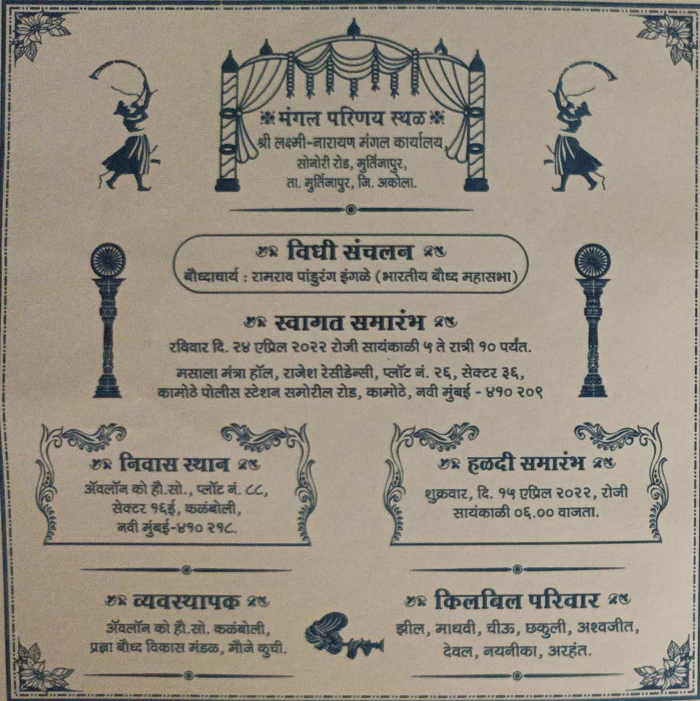 मंगल परिणय स्थळ
श्री लक्ष्मी-नारायण मंगल कार्यालय,
सोनोरी रोड, मुर्तिजापुर,
ता. मुर्तिजापुर, जि. अकोला.
विधी संचलन
बौध्दाचार्य : रामराव पांडुरंग इंगळे (भारतीय बौध्द महासभा)
स्वागत समारंभ
रविवार दि. २४ एप्रिल २०२२ रोजी सायंकाळी ५ ते रात्री १० पर्यंत.
मसाला मंत्रा हॉल, राजेश रेसीडेन्सी, प्लॉट नं. २६, सेक्टर ३६,
कामोठे पोलीस स्टेशन समोरील रोड, कामोठे, नवी मुंबई - ४१० २०९
निवास स्थान
ॲवलॉन को हौ.सो., प्लॉट नं. ८८,
सेक्टर १६ई, कळंबोली,
नवी मुंबई-४१० २१८.
हळदी समारंभ
शुक्रवार, दि. १५ एप्रिल २०२२, रोजी
सायंकाळी ०६.०० वाजता.
व्यवस्थापक
ॲवलॉन को हौ.सो. कळंबोली,
प्रज्ञा बौध्द विकास मंडळ, मौजे कुची.
किलबिल परिवार
झील, माधवी, चीऊ, छकुली, अश्वजीत,
देवल, नयनीका, अरहंत.